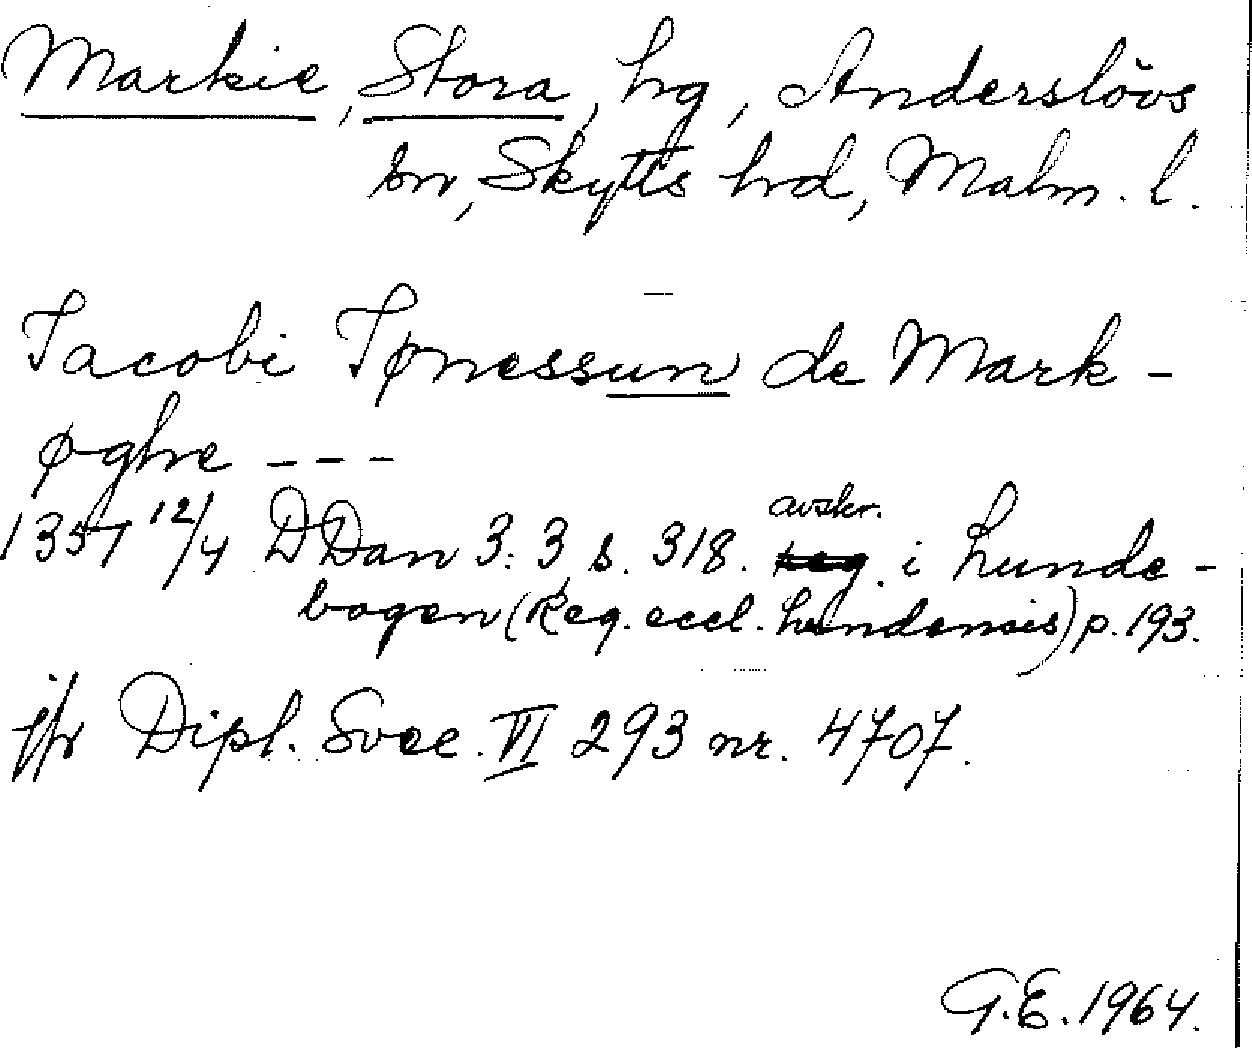 Markie, Stora, hg, Anderslövs
sn, Skytts hrd, Malm. l.
Jacobi Tønessun de Mark-
øghre ---
1351 12/4 DDan 3:3 s. 318. avskr. i Lunde-
bogen (Reg. eccl. Lundensis) p. 193.
jfr Dipl. Svec. VI 293 nr. 4707.
G.E. 1964.